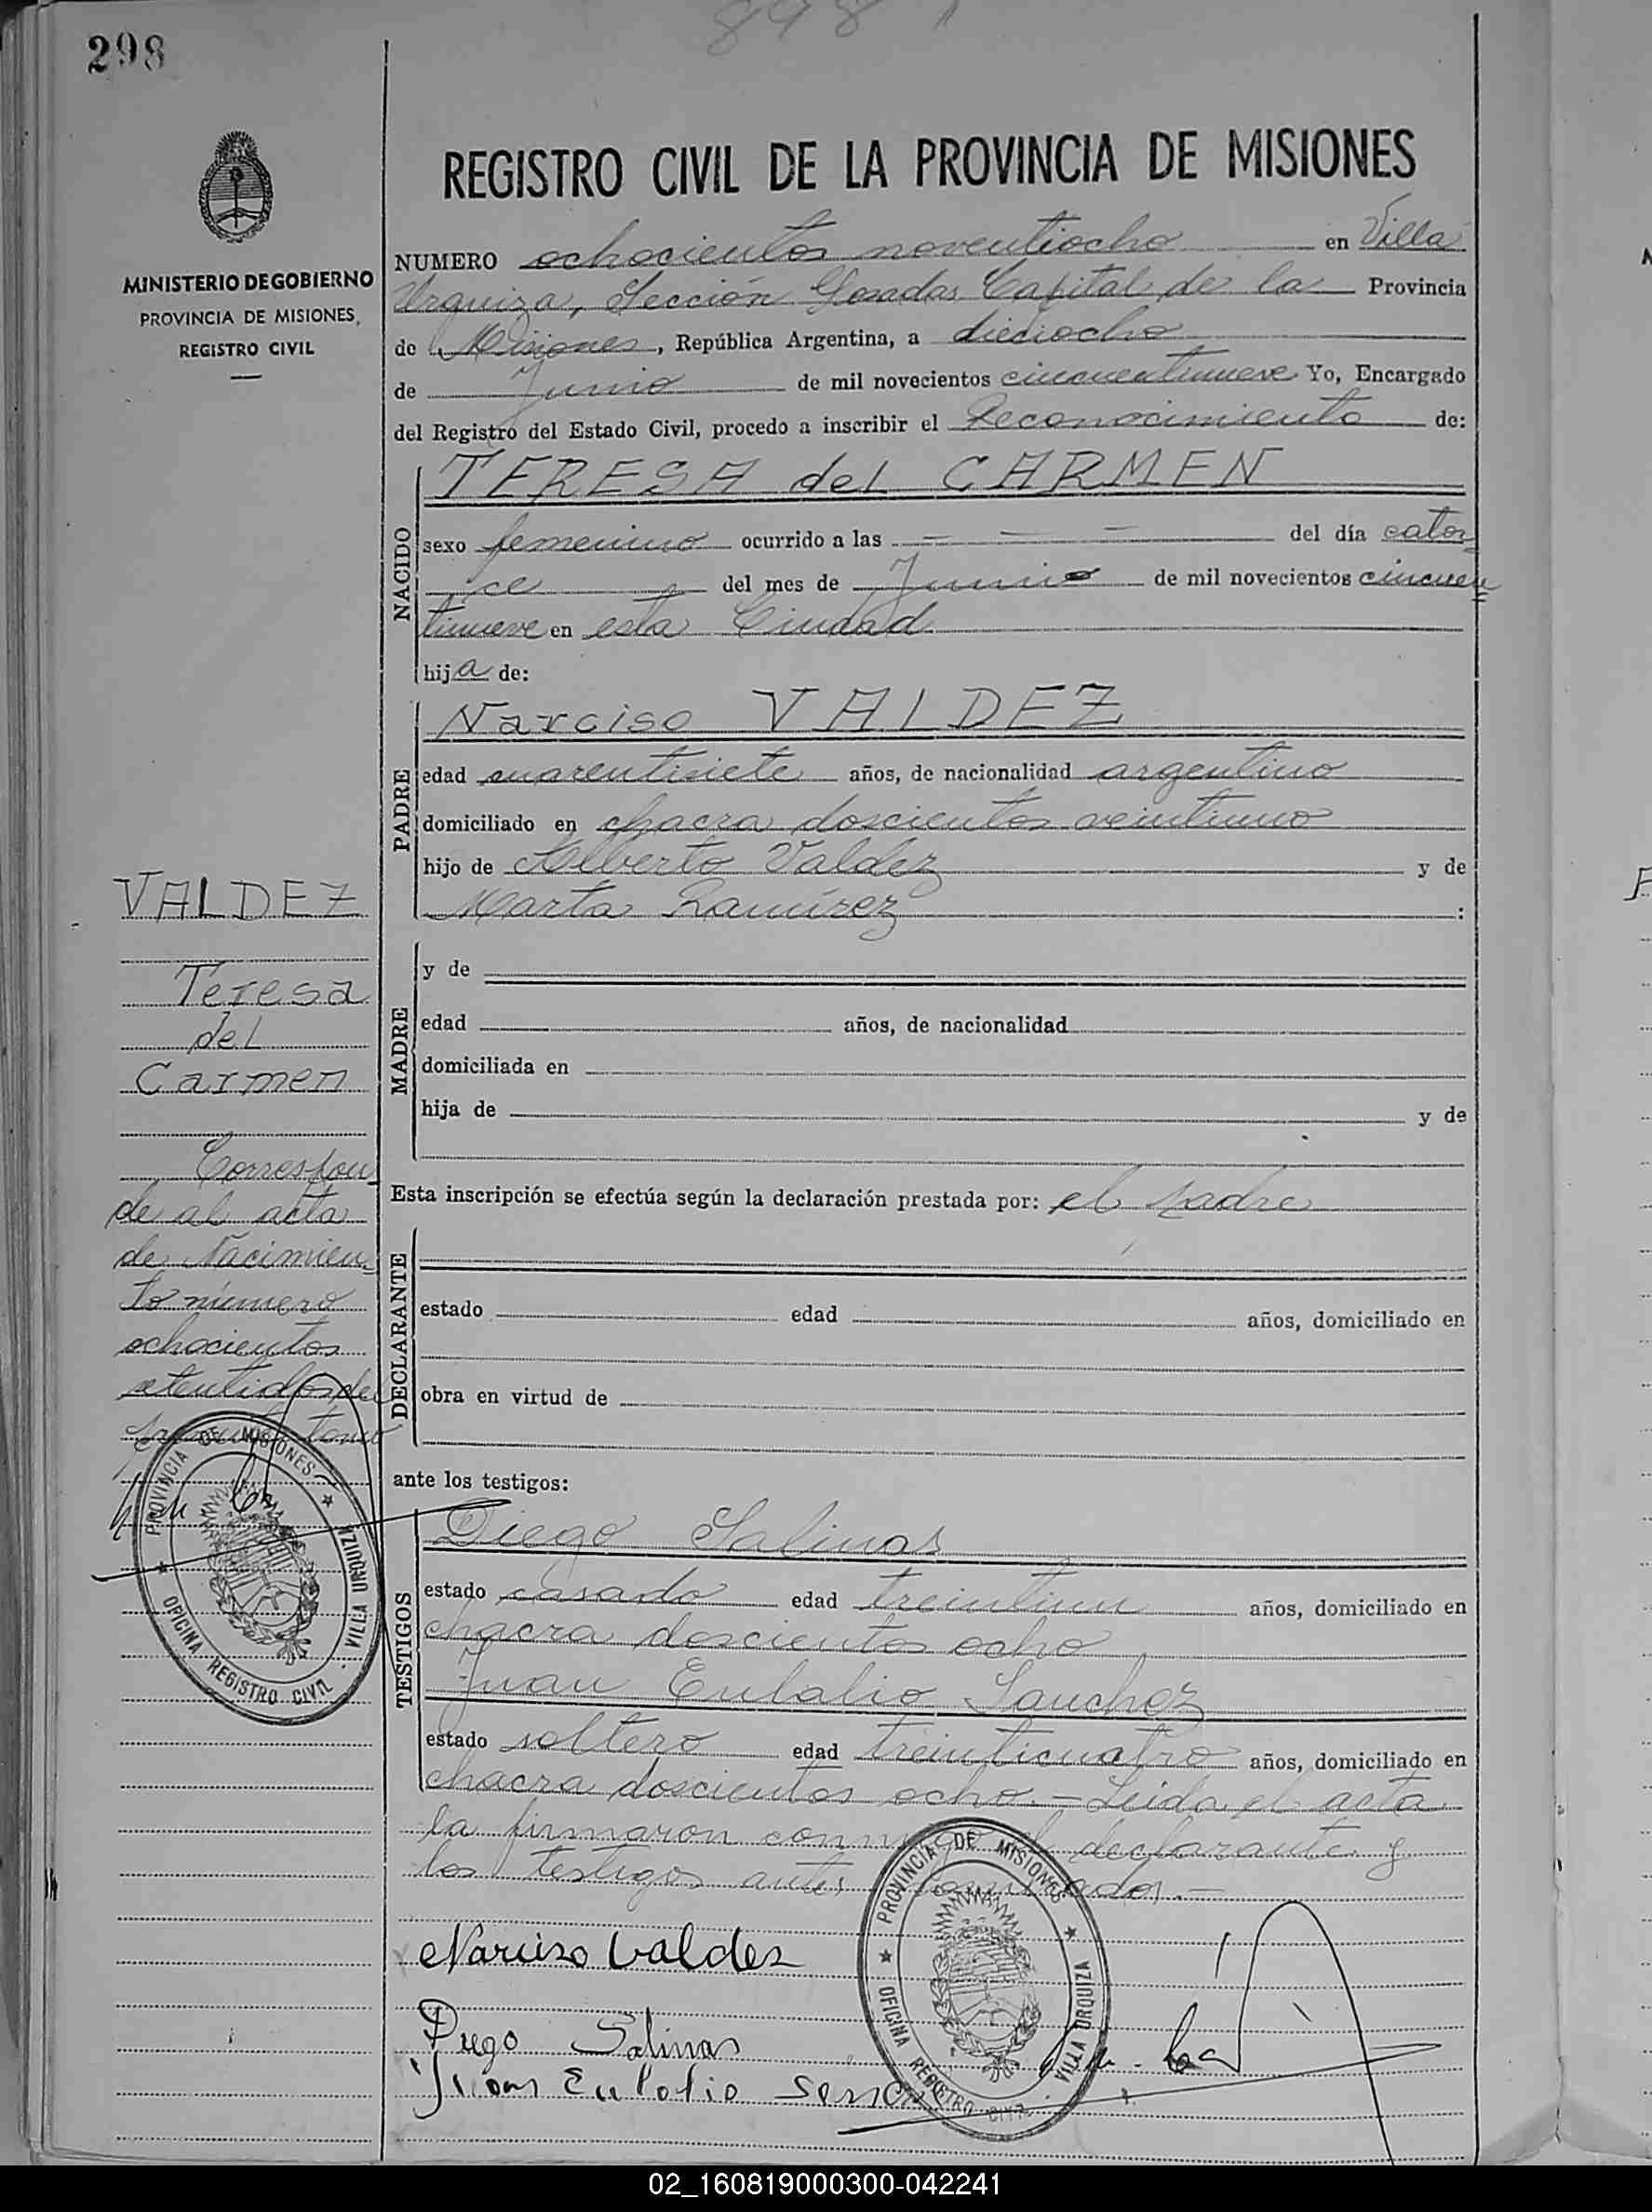 898
298
REGISTRO CIVIL DE LA PROVINCIA DE MISIONES
MINISTERIO DE GOBIERNO
PROVINCIA DE MISIONES,
REGISTRO CIVIL
NUMERO ochocientos noventiocho en Villa
Urquiza, Sección Posadas Capital de la Provincia
de Misiones, República Argentina, a dieciocho
de Junio de mil novecientos cincuentinueve Yo, Encargado
del Registro del Estado Civil, procedo a inscribir el Reconocimiento de:
NACIDO
TERESA del CARMEN
sexo femenino ocurrido a las — — — del día cator
ce del mes de Junio de mil novecientos cincuen
tinueve en esta Ciudad
hija de:
PADRE
Narciso VALDEZ
edad cuarentisiete años, de nacionalidad argentino
domiciliado en chacra doscientos veintiuno
hijo de Alberto Valdez y de
Marta Ramírez :
MADRE
y de
edad años, de nacionalidad
domiciliada en
hija de y de
Esta inscripción se efectúa según la declaración prestada por: el padre
DECLARANTE
estado edad años, domiciliado en
obra en virtud de
ante los testigos:
TESTIGOS
Diego Salinas
estado casado edad treintiun años, domiciliado en
chacra doscientos ocho
Juan Eulalio Sanchez
estado soltero edad treinticuatro años, domiciliado en
chacra doscientos ocho.— Leida el acta
la firmaron declarante y
los testigos antes
Narciso Valdez
Diego Salinas
Juan Eulalio
VALDEZ
Teresa
del
Carmen
Correspon
de al acta
de Nacimien
to número
ochocientos
tomo
PROVINCIA DE MISIONES
VILLA URQUIZA
OFICINA REGISTRO CIVIL
PROVINCIA DE MISIONES
VILLA URQUIZA
OFICINA REGISTRO CIVIL
02_160819000300-042241